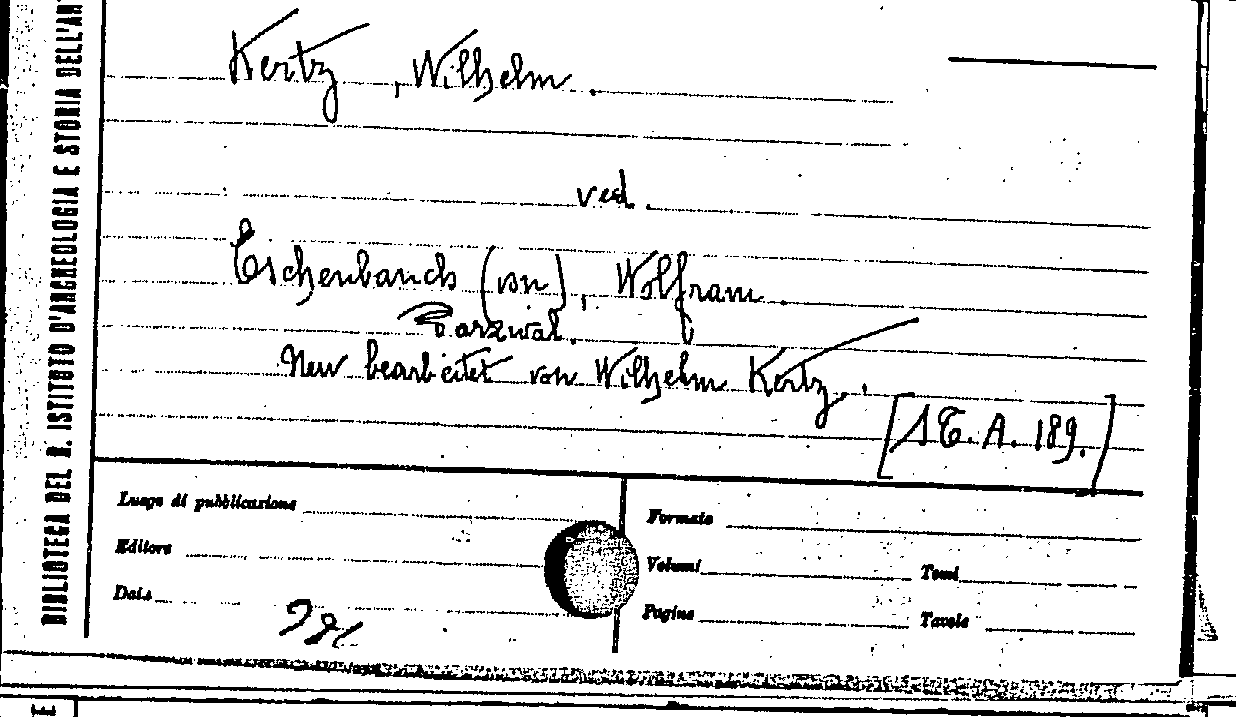 BIBLIOTECA DEL R. ISTITUTO D'ARCHEOLOGIA E STORIA DELL'AR
Kertz, Wilhelm.
ved.
Eschenbach (von), Wolfram.
Parzival.
Neu bearbeitet von Wilhelm Kertz.
[A.189.]
Luogo di pubblicazione
Editore
Data
Formato
Volumi Tomi
Pagine Tavole